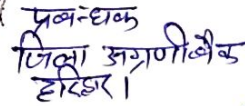 प्रबन्धक
जिला अग्रणी बैंक
हरिद्वार।